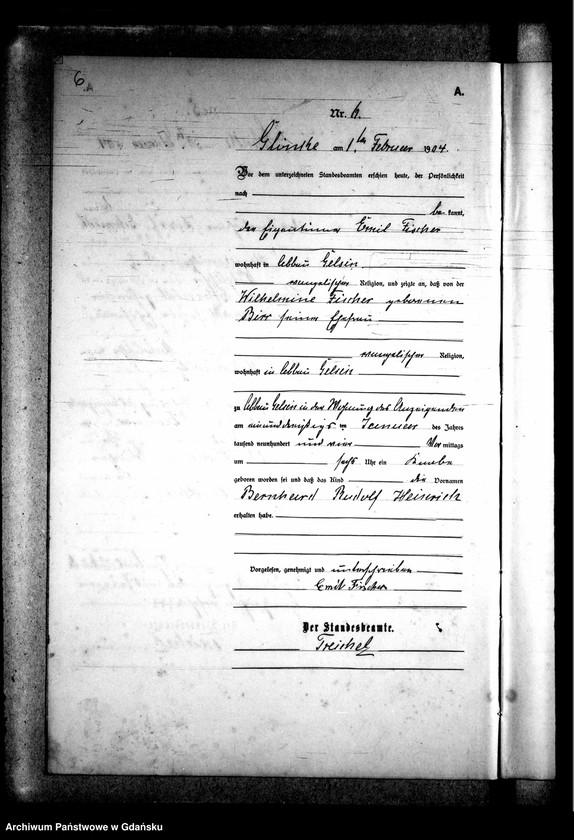 6.
A.
Nr. 6.
Glinke am 1ten Februar 1904.
Vor dem unterzeichneten Standesbeamten erschien heute, der Persönlichkeit
nach
be kannt,
der Eigentümer Emil Fischer
wohnhaft in Abbau Gelsin
evangelischer Religion, und zeigte an, daß von der
Wilhelmine Fischer geborenen
Birr seiner Ehefrau
evangelischer Religion,
wohnhaft in Abbau Gelsin
zu Abbau Gelsin in der Wohnung des Anzeigenden
am einunddreißigsten Januar des Jahres
tausend neunhundert und vier Vor mittags
um sechs Uhr ein Knabe
geboren worden sei und daß das Kind die Vornamen
Bernhard Rudolf Heinrich
erhalten habe.
Vorgelesen, genehmigt und unterschrieben
Emil Fischer
Der Standesbeamte.
Treichel
Archiwum Państwowe w Gdańsku